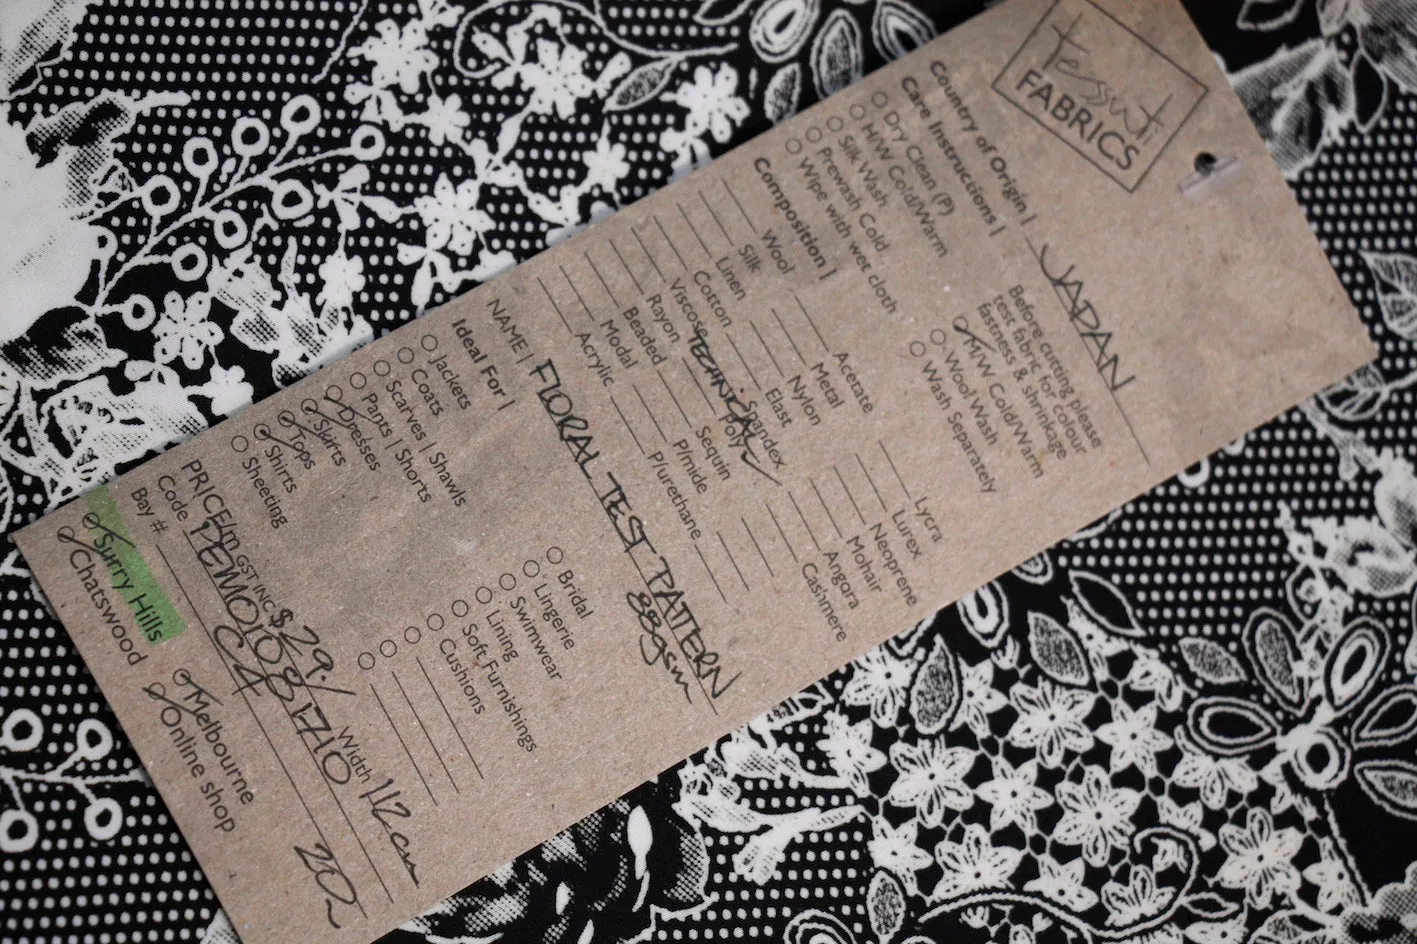 Tessuti
FABRICS
Country of Origin | JAPAN
Care Instructions |
Before cutting please
test fabric for colour
fastness & shrinkage
Dry Clean (P)
H/W Cold/Warm
Silk Wash
Prewash Cold
Wipe with wet cloth
M/W Cold/Warm
Wool Wash
Wash Separately
Composition |
Wool
Silk
Linen
Cotton
Viscose
Rayon
Beaded
Modal
Acrylic
Acetate
Metal
Nylon
Elast
Spandex
TECHNICAL Poly
Sequin
P/mide
P/urethane
Lycra
Lurex
Neoprene
Mohair
Angora
Cashmere
NAME | FLORAL TEST PATTERN
88gsm
Ideal For |
Jackets
Coats
Scarves | Shawls
Pants | Shorts
Dresses
Skirts
Tops
Shirts
Sheeting
Bridal
Lingerie
Swimwear
Lining
Soft Furnishings
Cushions
PRICE/m GST INC $29./ Width 112cm
Code
Bay # C4
20m
Surry Hills
Chatswood
Melbourne
Online shop